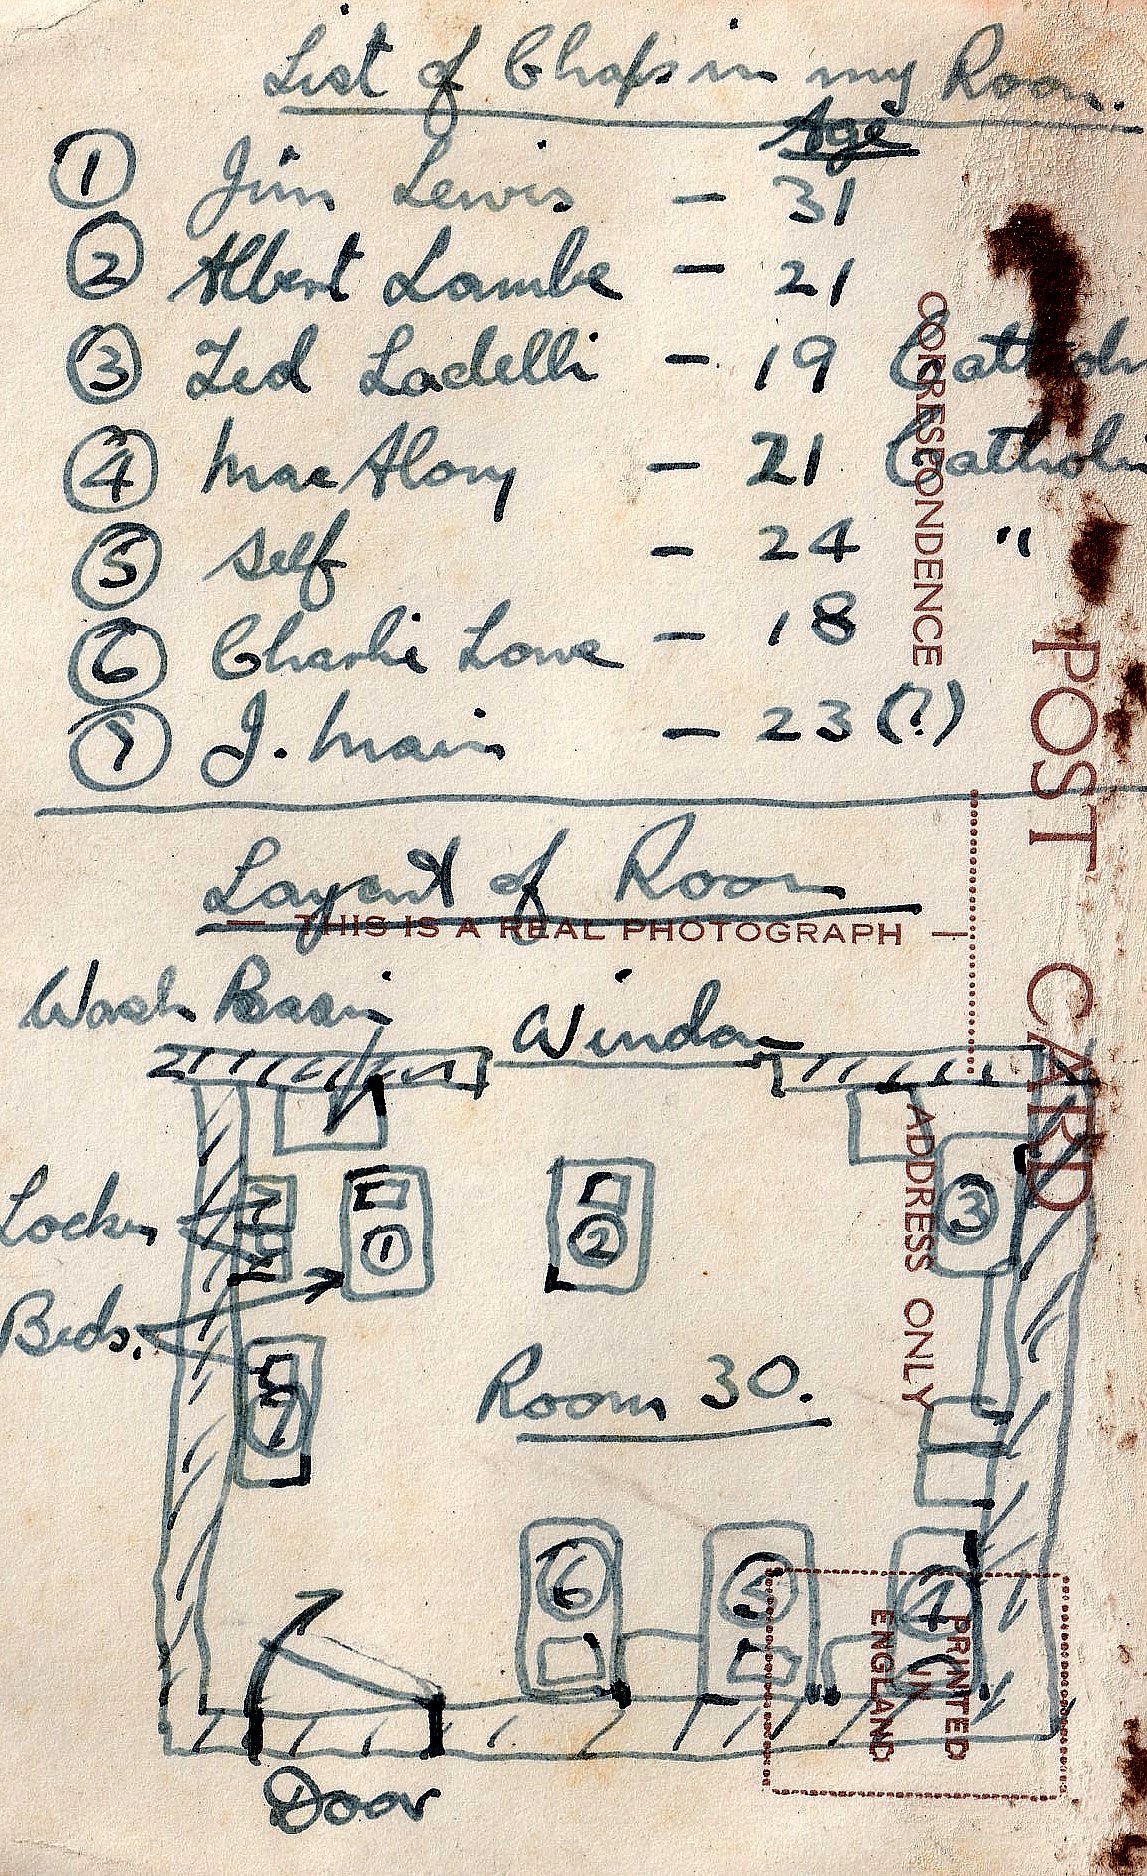 List of Chaps in my Room.
Age
① Jim Lewis - 31
② Albert Lambe - 21
③ Ted Ladelli - 19 Cathol
④ Mac Alony - 21 Cathol
⑤ Self - 24 "
⑥ Charlie Lowe - 18
⑦ J. Main - 23 (?)
Layout of Room
— THIS IS A REAL PHOTOGRAPH —
Wash Basin
Window
Locker
Beds.
①
②
③
⑦
Room 30.
⑥
⑤
④
Door
CORRESPONDENCE
ADDRESS ONLY
POST CARD
PRINTED
IN
ENGLAND